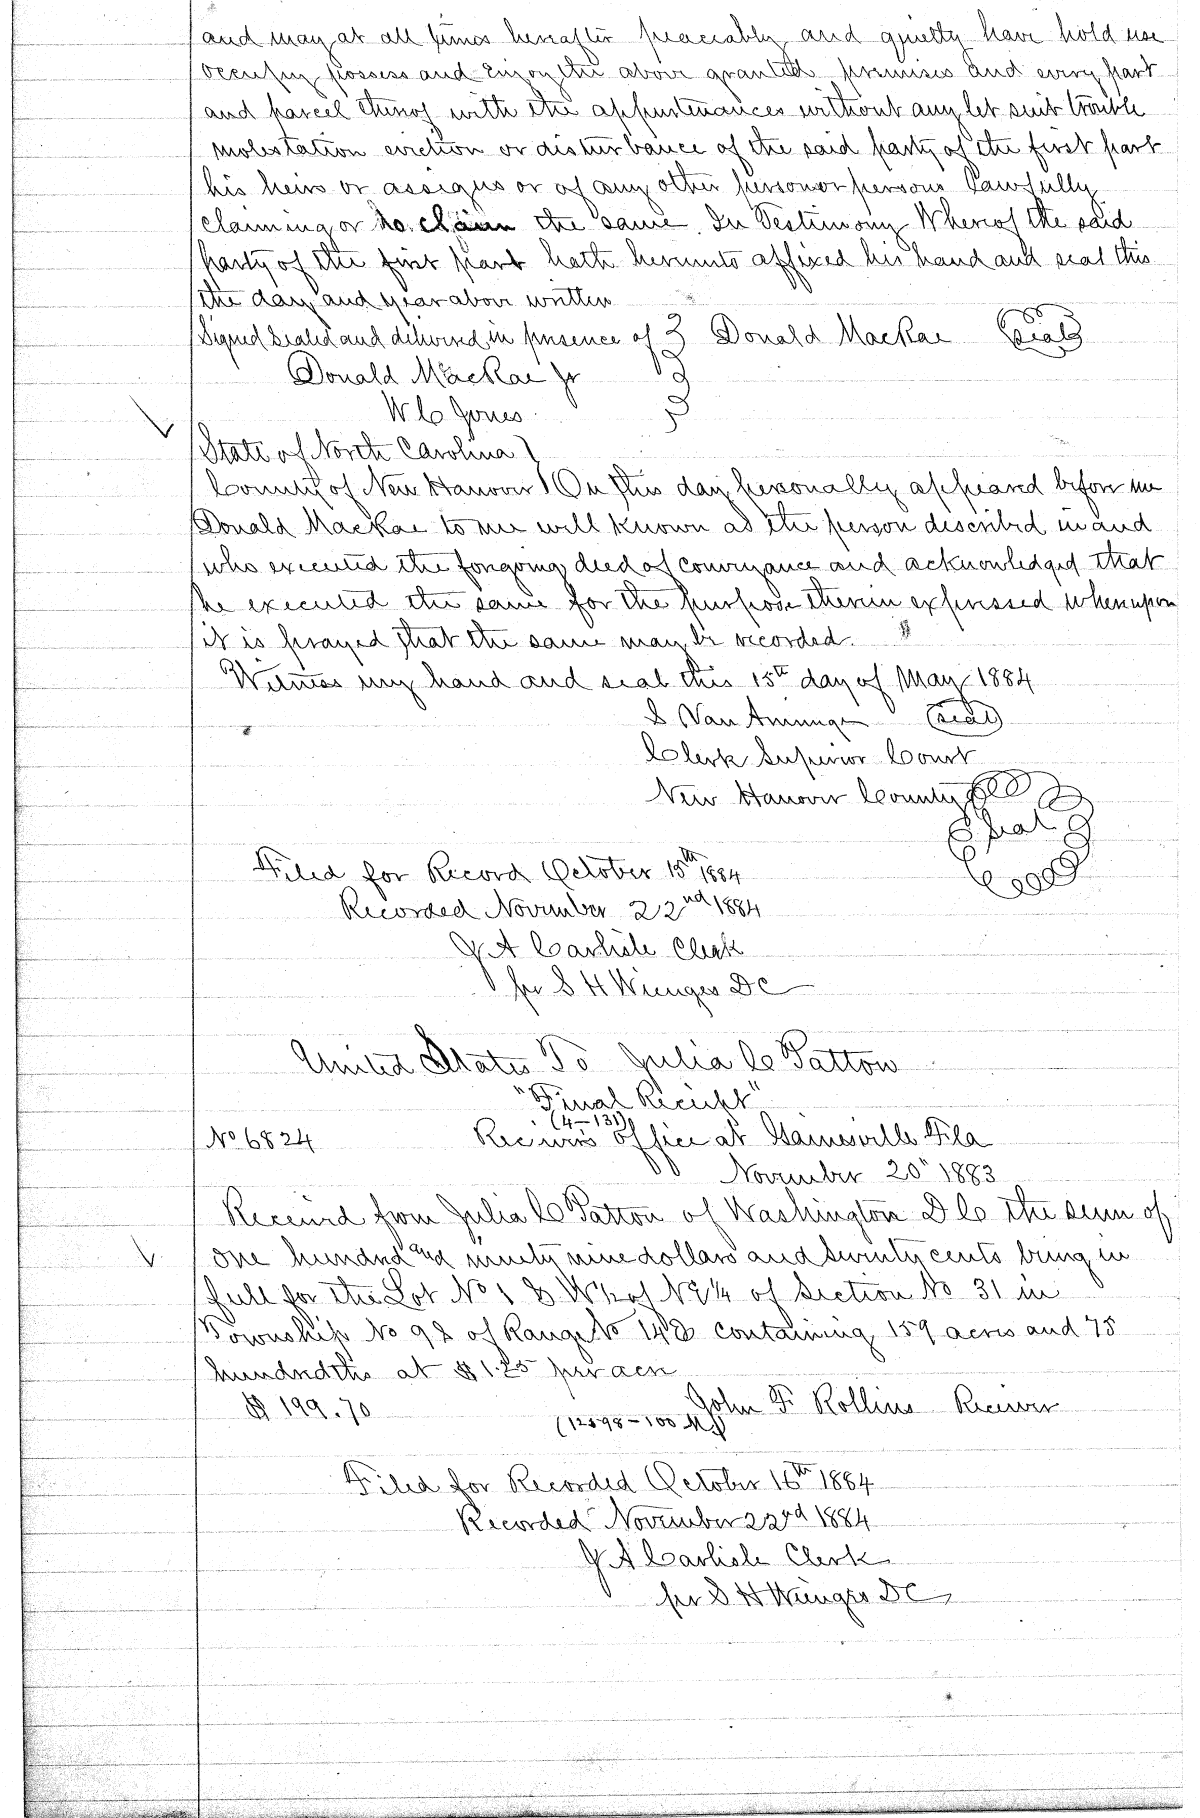 and may at all times hereafter peaceably and quietly have hold use
occupy possess and enjoy the above granted premises and every part
and parcel thereof with the appurtenances without any let suit trouble
molestation eviction or disturbance of the said party of the first part
his heirs or assigns or of any other person or persons lawfully
claiming or to claim the same. In Testimony Whereof the said
party of the first part hath hereunto affixed his hand and seal this
the day and year above written
Signed sealed and delivered in presence of Donald MacRae Seal
Donald MacRae Jr
W C Jones
State of North Carolina
County of New Hanover On this day personally appeared before me
Donald MacRae to me well known as the person described in and
who executed the foregoing deed of conveyance and acknowledged that
he executed the same for the purpose therein expressed whereupon
it is prayed that the same may be recorded.
Witness my hand and seal this 15th day of May 1884
S Van Amringe Seal
Clerk Superior Court
New Hanover County
Seal
Filed for Record October 15th 1884
Recorded November 22nd 1884
J A Carlisle Clerk
per S H Wienges DC
United States To Julia C Patton
"Final Receipt"
(4-131)
No 6824 Receivers Office at Gainesville Fla
November 20" 1883
Received from Julia C Patton of Washington D C the sum of
one hundred and ninety nine dollars and twenty cents being in
full for the Lot No 1 & W½ of NE¼ of Section No 31 in
Township No 9S of Range No 14E containing 159 acres and 75
hundredths at $1.25 per acre
$199.70 John F Rollins Receiver
(12598-100 M)
Filed for Recorded October 16th 1884
Recorded November 22nd 1884
J A Carlisle Clerk
per S H Wienges DC